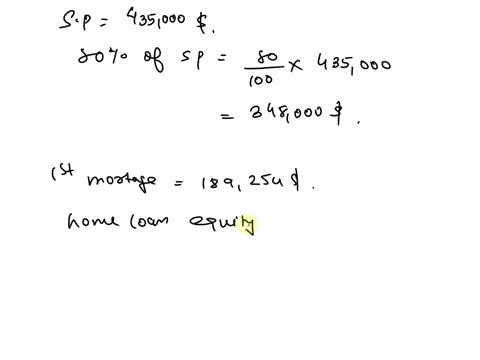 S.P = 435,000 $.
80% of SP = 80/100 × 435,000
= 348,000 $.
1st mortage = 189,254 $.
home loan equity